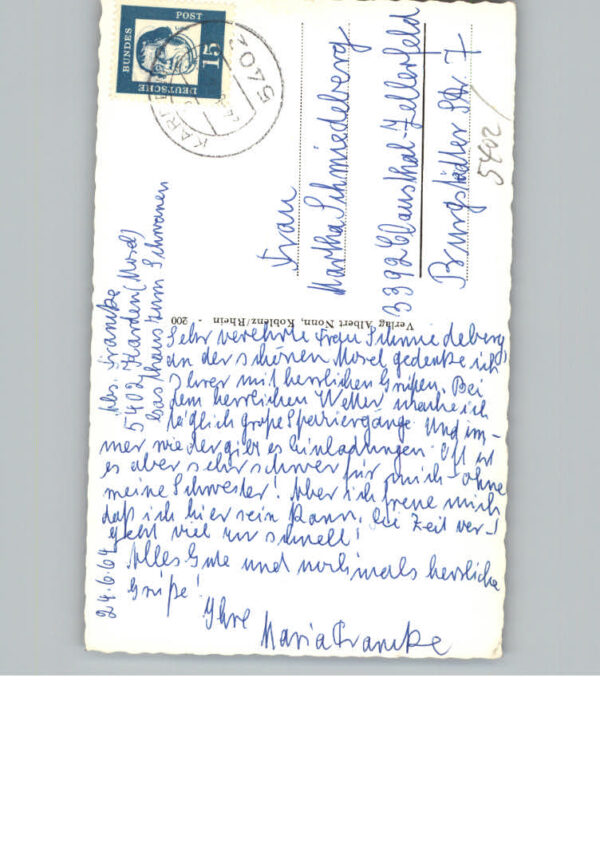 DEUTSCHE
BUNDES
POST
15
5402
Frau
Martha Schmiedeberg
3392 Clausthal-Zellerfeld
Burgstädter Str. 7
5402/
Verlag Albert Nonn, Koblenz/Rhein - 200
Abs. Francke
5402 Karden (Mosel)
Gasthaus zum Schwanen
24.6.64
Sehr verehrte Frau Schmiedeberg,
an der schönen Mosel gedenke ich
Ihrer mit herzlichen Grüßen. Bei
dem herrlichen Wetter mache ich
täglich große Spaziergänge. Und im-
mer wieder gibt es Einladungen. Oft ist
es aber sehr schwer für mich - ohne
meine Schwester! Aber ich freue mich
daß ich hier sein kann. Die Zeit ver-
geht viel zu schnell!
Alles Gute und nochmals herzliche
Grüße!
Ihre
Maria Francke